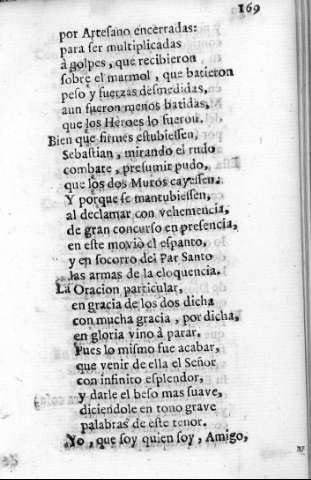 169
por Artesano encerradas:
para ser multiplicadas
à golpes, que recibieron
sobre el marmol, que batieron
peso y fuerzas desmedidas,
aun fueron menos batidas,
que los Héroes lo fueron.
Bien que firmes estubiessen,
Sebastian, mirando el rudo
combate, presumir pudo,
que los dos Muros cayessen.
Y porque se mantubiessen,
al declamar con vehemencia,
de gran concurso en presencia,
en este moviò el espanto,
y en socorro del Par Santo
las armas de la eloquencia.
La Oracion particular,
en gracia de los dos dicha
con mucha gracia, por dicha,
en gloria vino à parar.
Pues lo mismo fue acabar,
que venir de ella el Señor
con infinito esplendor,
y darle el beso mas suave,
diciendole en tono grave
palabras de este tenor.
Yo, que soy quien soy, Amigo,